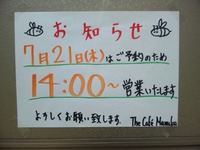 お知らせ
7月21日(木)はご予約のため
14:00〜営業いたします
よろしくお願い致します。
The Café